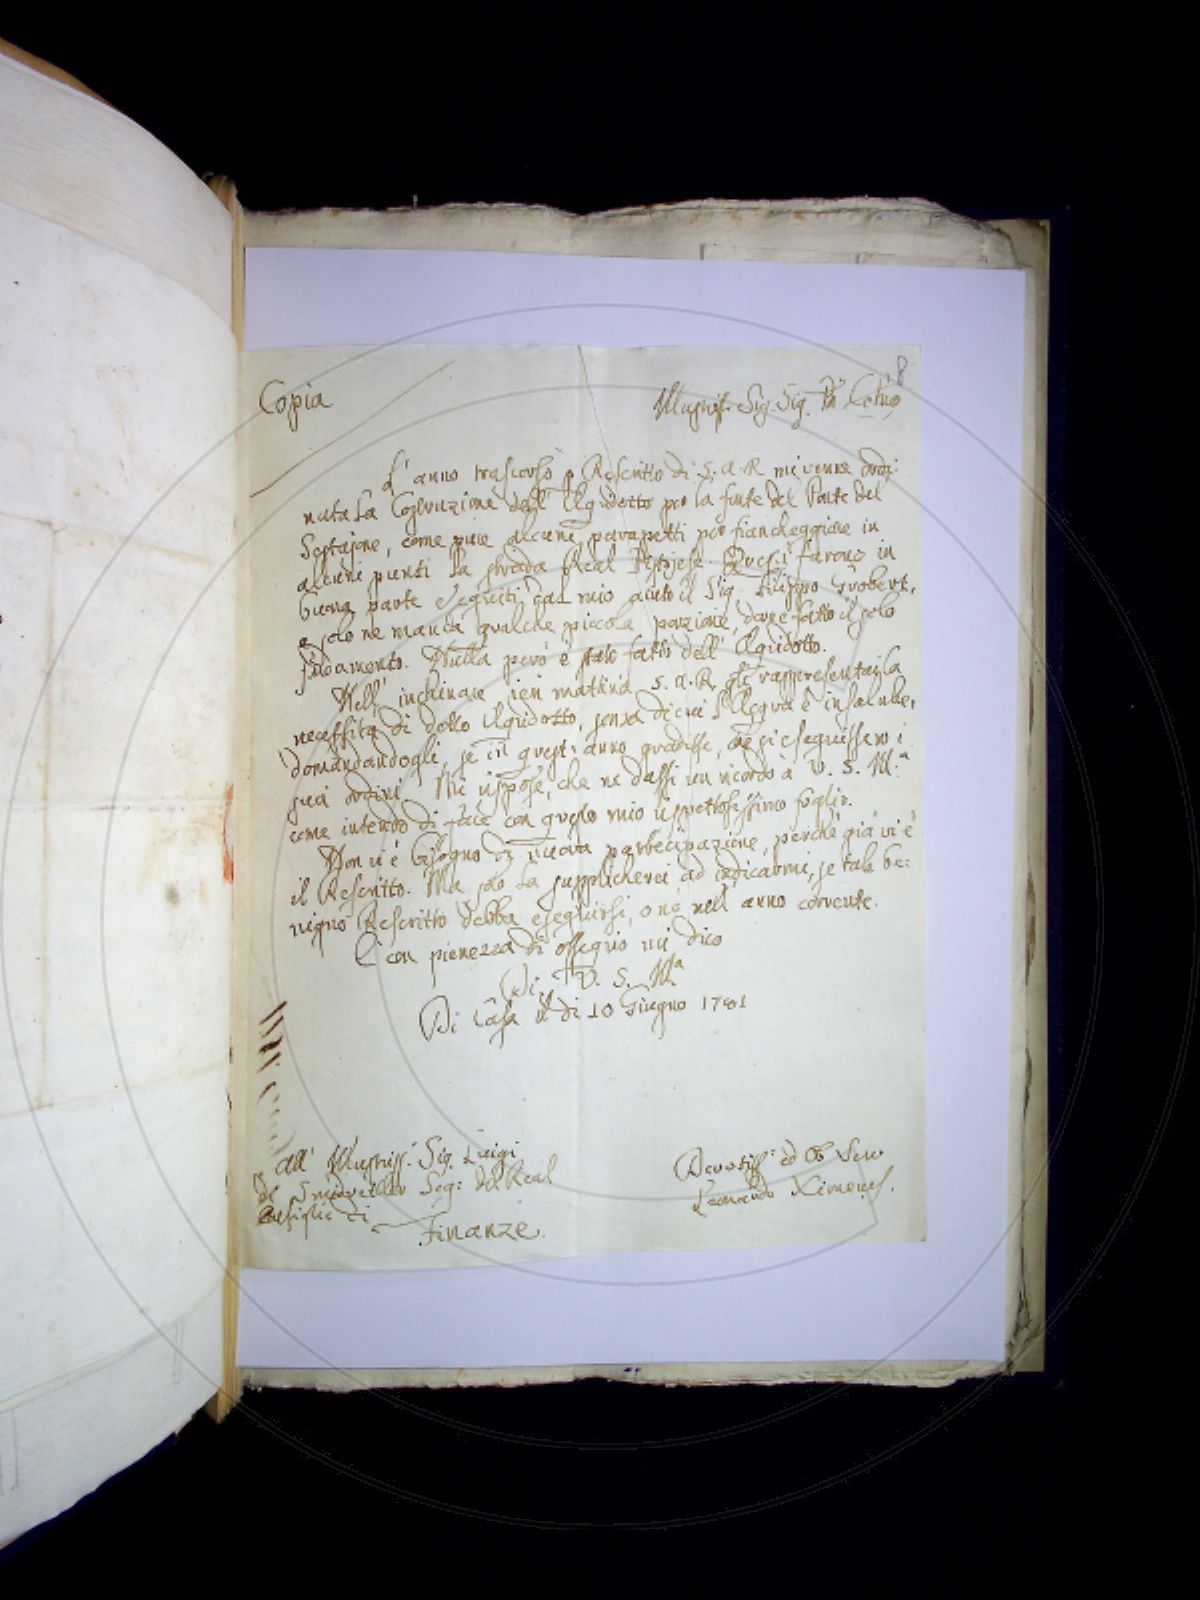 8
Copia
Illustriss. Sig. Sig. Pn
L'anno trascorso p Rescritto di S. A. R mi venne ordi:
nata la Costruzione dell' Aquidotto per la fonte del Ponte del
Sestajone, come pure alcuni parapetti per fiancheggiare in
alcuni punti la strada Real Pistojese. Questi furono in
buona parte eseguiti dal mio aiuto il Sig. Grobert,
e solo ne manca qualche piccola porzione, dove è fatto il solo
fondamento. Nulla però è stato fatto dell' Aquidotto.
Nell' inchinare ieri mattina S. A. R. gli rappresentai la
necessità di detto Aquidotto, senza di cui l'Acqua è insalubre,
domandandogli, se in quest' anno gradisse, che si eseguissero i
suoi ordini. Mi rispose, che ne dassi un ricordo a V. S. Ill.a
come intendo di fare con questo mio rispettosissimo foglio.
Non vi è bisogno di nuova partecipazione, perchè già vi è
il Rescritto. Ma solo la supplicherei ad indicarmi, se tale be:
nigno Rescritto debba eseguirsi, o nò nell' anno corrente.
E con pienezza di ossequio mi dico
Di V. S. Ill.a
Di Casa il di 10 Giugno 1781
All' Illustriss. Sig. Luigi
Seg: del Real
Consiglio di
Finanze.
Devotiss: ed Ob Serv
Leonardo Ximenes.